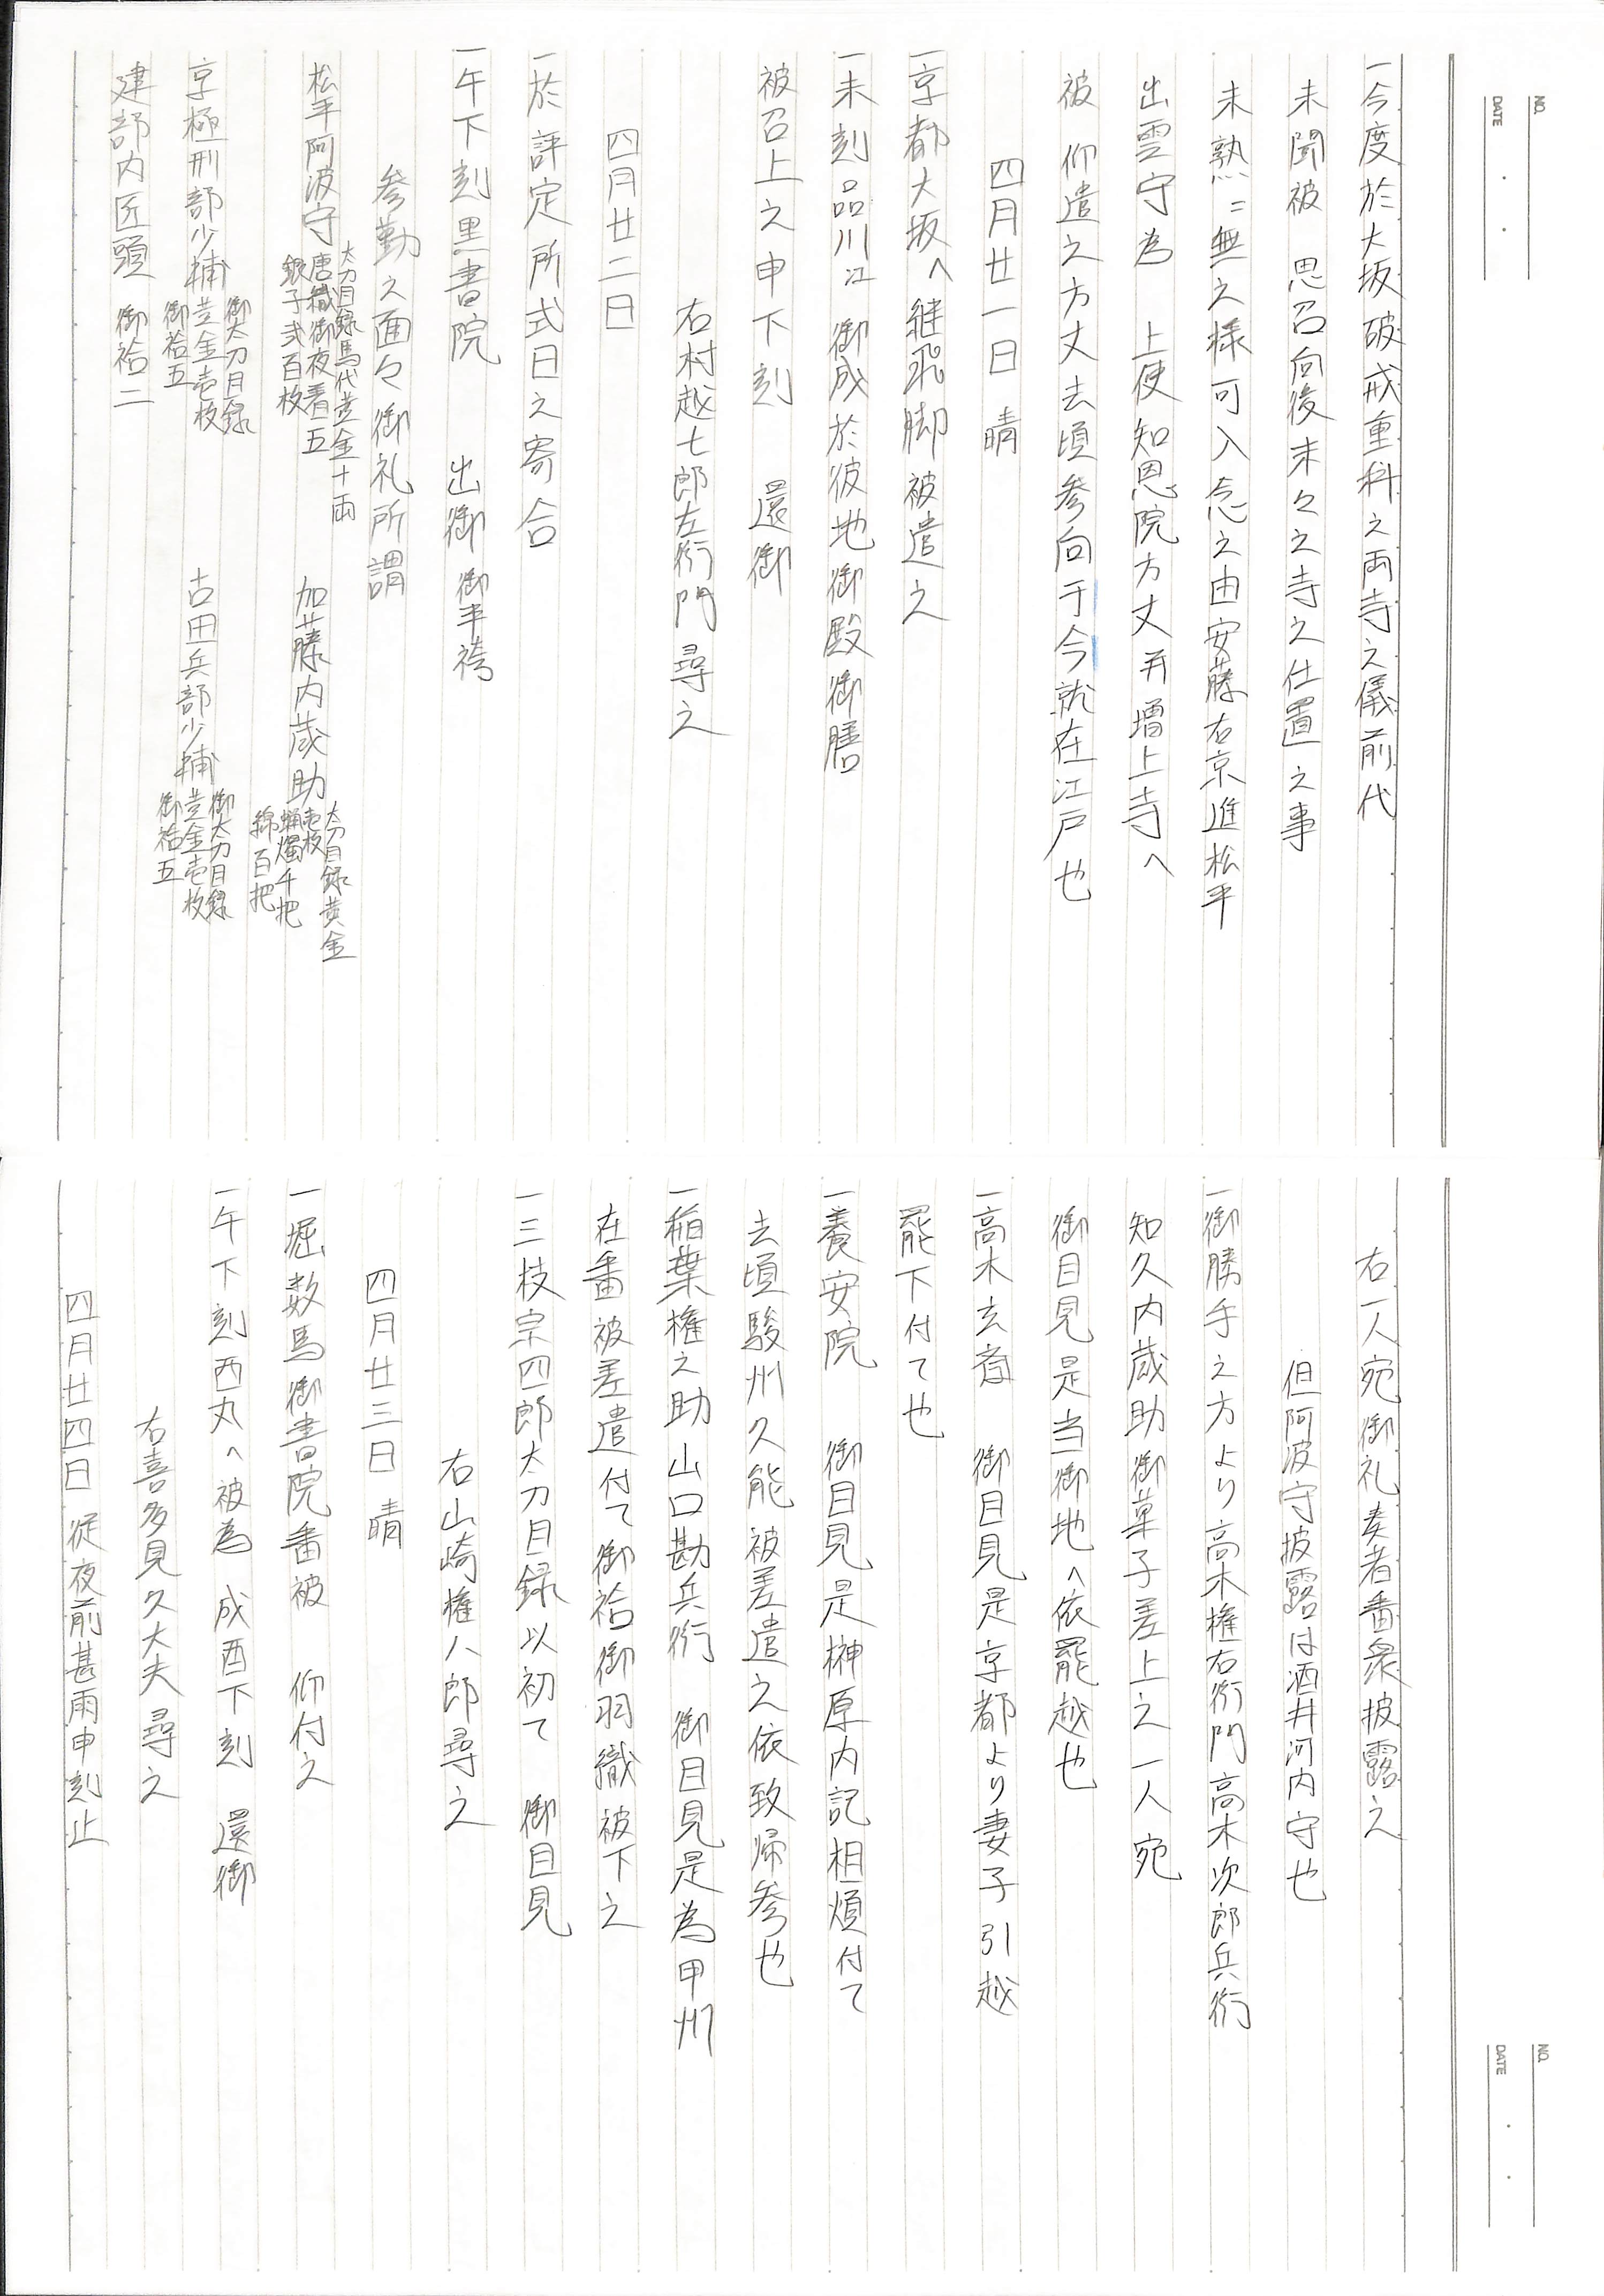 NO.
DATE
一今度於大坂破戒重科之両寺之儀前代
未聞被　思召向後末々之寺之仕置之事
未熟ニ無之様可入念之由安藤右京進松平
出雲守為　上使知恩院方丈并増上寺へ
被　仰遣之方丈去頃参向于今就在江戸也
四月廿一日　晴
一京都大坂へ継飛脚被遣之
一未刻品川江　御成於彼地御殿御膳
被召上之申下刻　還御
右村越七郎左衛門尋之
四月廿二日
一於評定所式日之寄合
一午下刻黒書院　出御　御半袴
参勤之面々御礼所謂
松平阿波守　太刀目録馬代黄金十両　唐織御夜着五　銀子弐百枚　加藤内蔵助　太刀目録黄金壱枚　蝋燭千把　綿百把
京極刑部少輔　御太刀目録　黄金壱枚　御袷五　古田兵部少輔　御太刀目録　黄金壱枚　御袷五
建部内匠頭　御袷二
NO.
DATE
右一人宛御礼奏者番衆披露之
但阿波守披露は酒井河内守也
一御勝手之方より高木権右衛門高木次郎兵衛
知久内蔵助御菓子差上之一人宛
御目見是当御地へ依罷越也
一高木玄斎　御目見是京都より妻子引越
罷下付て也
一養安院　御目見是榊原内記相煩付て
去頃駿州久能被差遣之依致帰参也
一稲葉権之助山口勘兵衛　御目見是為甲州
在番被差遣付て御袷御羽織被下之
一三枝宗四郎太刀目録以初て　御目見
右山崎権八郎尋之
四月廿三日　晴
一堀数馬御書院番被　仰付之
一午下刻西丸へ被為　成酉下刻　還御
右喜多見久大夫尋之
四月廿四日　従夜前甚雨申刻止